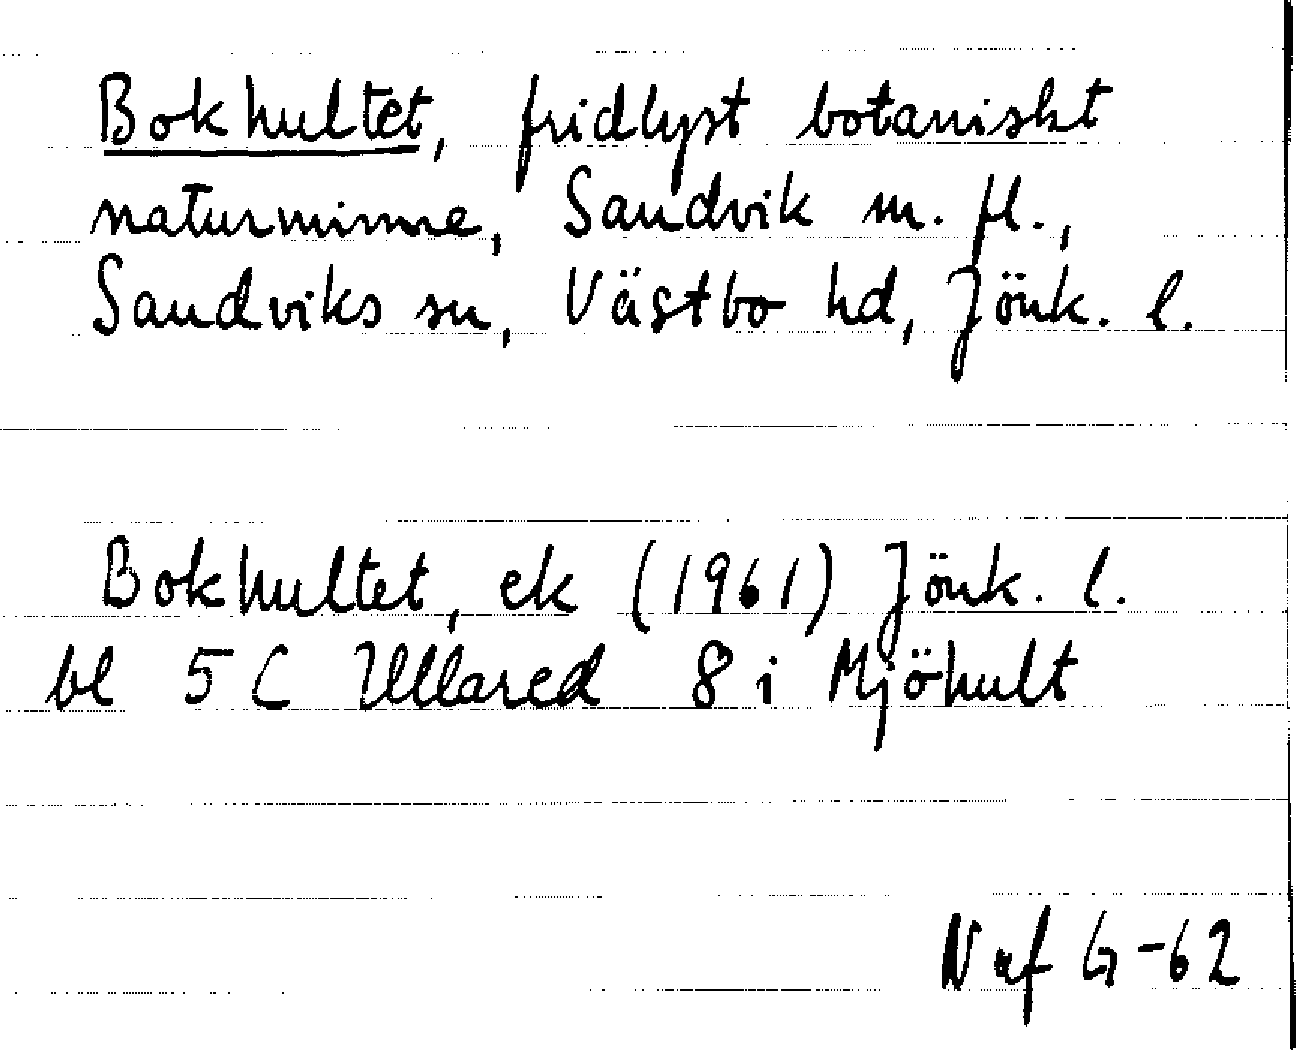 Bokhultet, fridlyst botaniskt
naturminne, Sandvik m. fl.,
Sandviks sn, Västbo hd, Jönk. l.
Bokhultet, ek (1961) Jönk. l.
bl 5C Ullared 8 i Mjöhult
Naf G-62